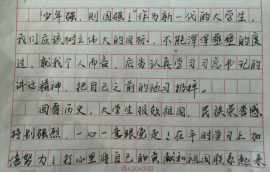 “少年强，则国强！”作为新一代的大学生，
我们应该树立伟大的目标，不能浑浑噩噩的度
过，就我个人而言，应当认真学习习总书记的
讲话精神，把自己之前的
回看历史，大学生报效祖国，民族荣誉感
特别强烈，一心一意跟党走！在平时学习上加
倍努力！打心里将自己的贡献和祖国联系起来